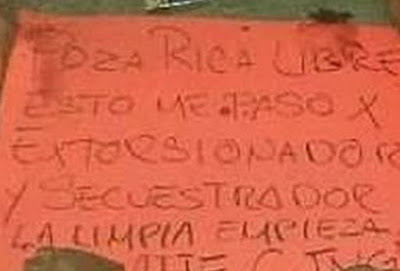 POZA RICA LIBRE
ESTO ME PASO X
EXTORSIONADOR
Y SECUESTRADOR
LA LIMPIA EMPIEZA
ATTE